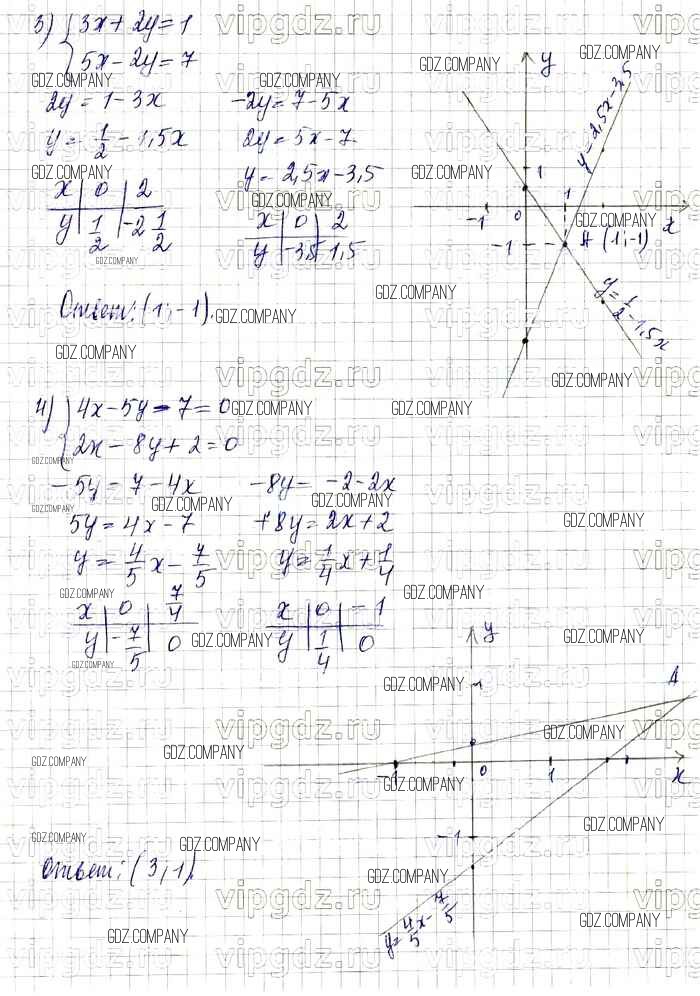 3) { 3x + 2y = 1
5x - 2y = 7
2y = 1 - 3x
-2y = 7 - 5x
y = 1/2 - 1,5x
2y = 5x - 7
y = 2,5x - 3,5
x | 0 | 2
y | 1/2 | -2 1/2
x | 0 | 2
y | -3,5 | 1,5
Ответ: (1; -1).
y
y = 2,5x - 3,5
1
-1 0 1 x
-1 A (1; -1)
y = 1/2 - 1,5x
4) { 4x - 5y - 7 = 0
2x - 8y + 2 = 0
-5y = 7 - 4x
-8y = -2 - 2x
5y = 4x - 7
+8y = 2x + 2
y = 4/5 x - 7/5
y = 1/4 x + 1/4
x | 0 | 7/4
y | -7/5 | 0
x | 0 | -1
y | 1/4 | 0
y
1
A
-1 0 1 x
-1
y = 4/5 x - 7/5
Ответ: (3, 1).
vipgdz.ru
GDZ.COMPANY